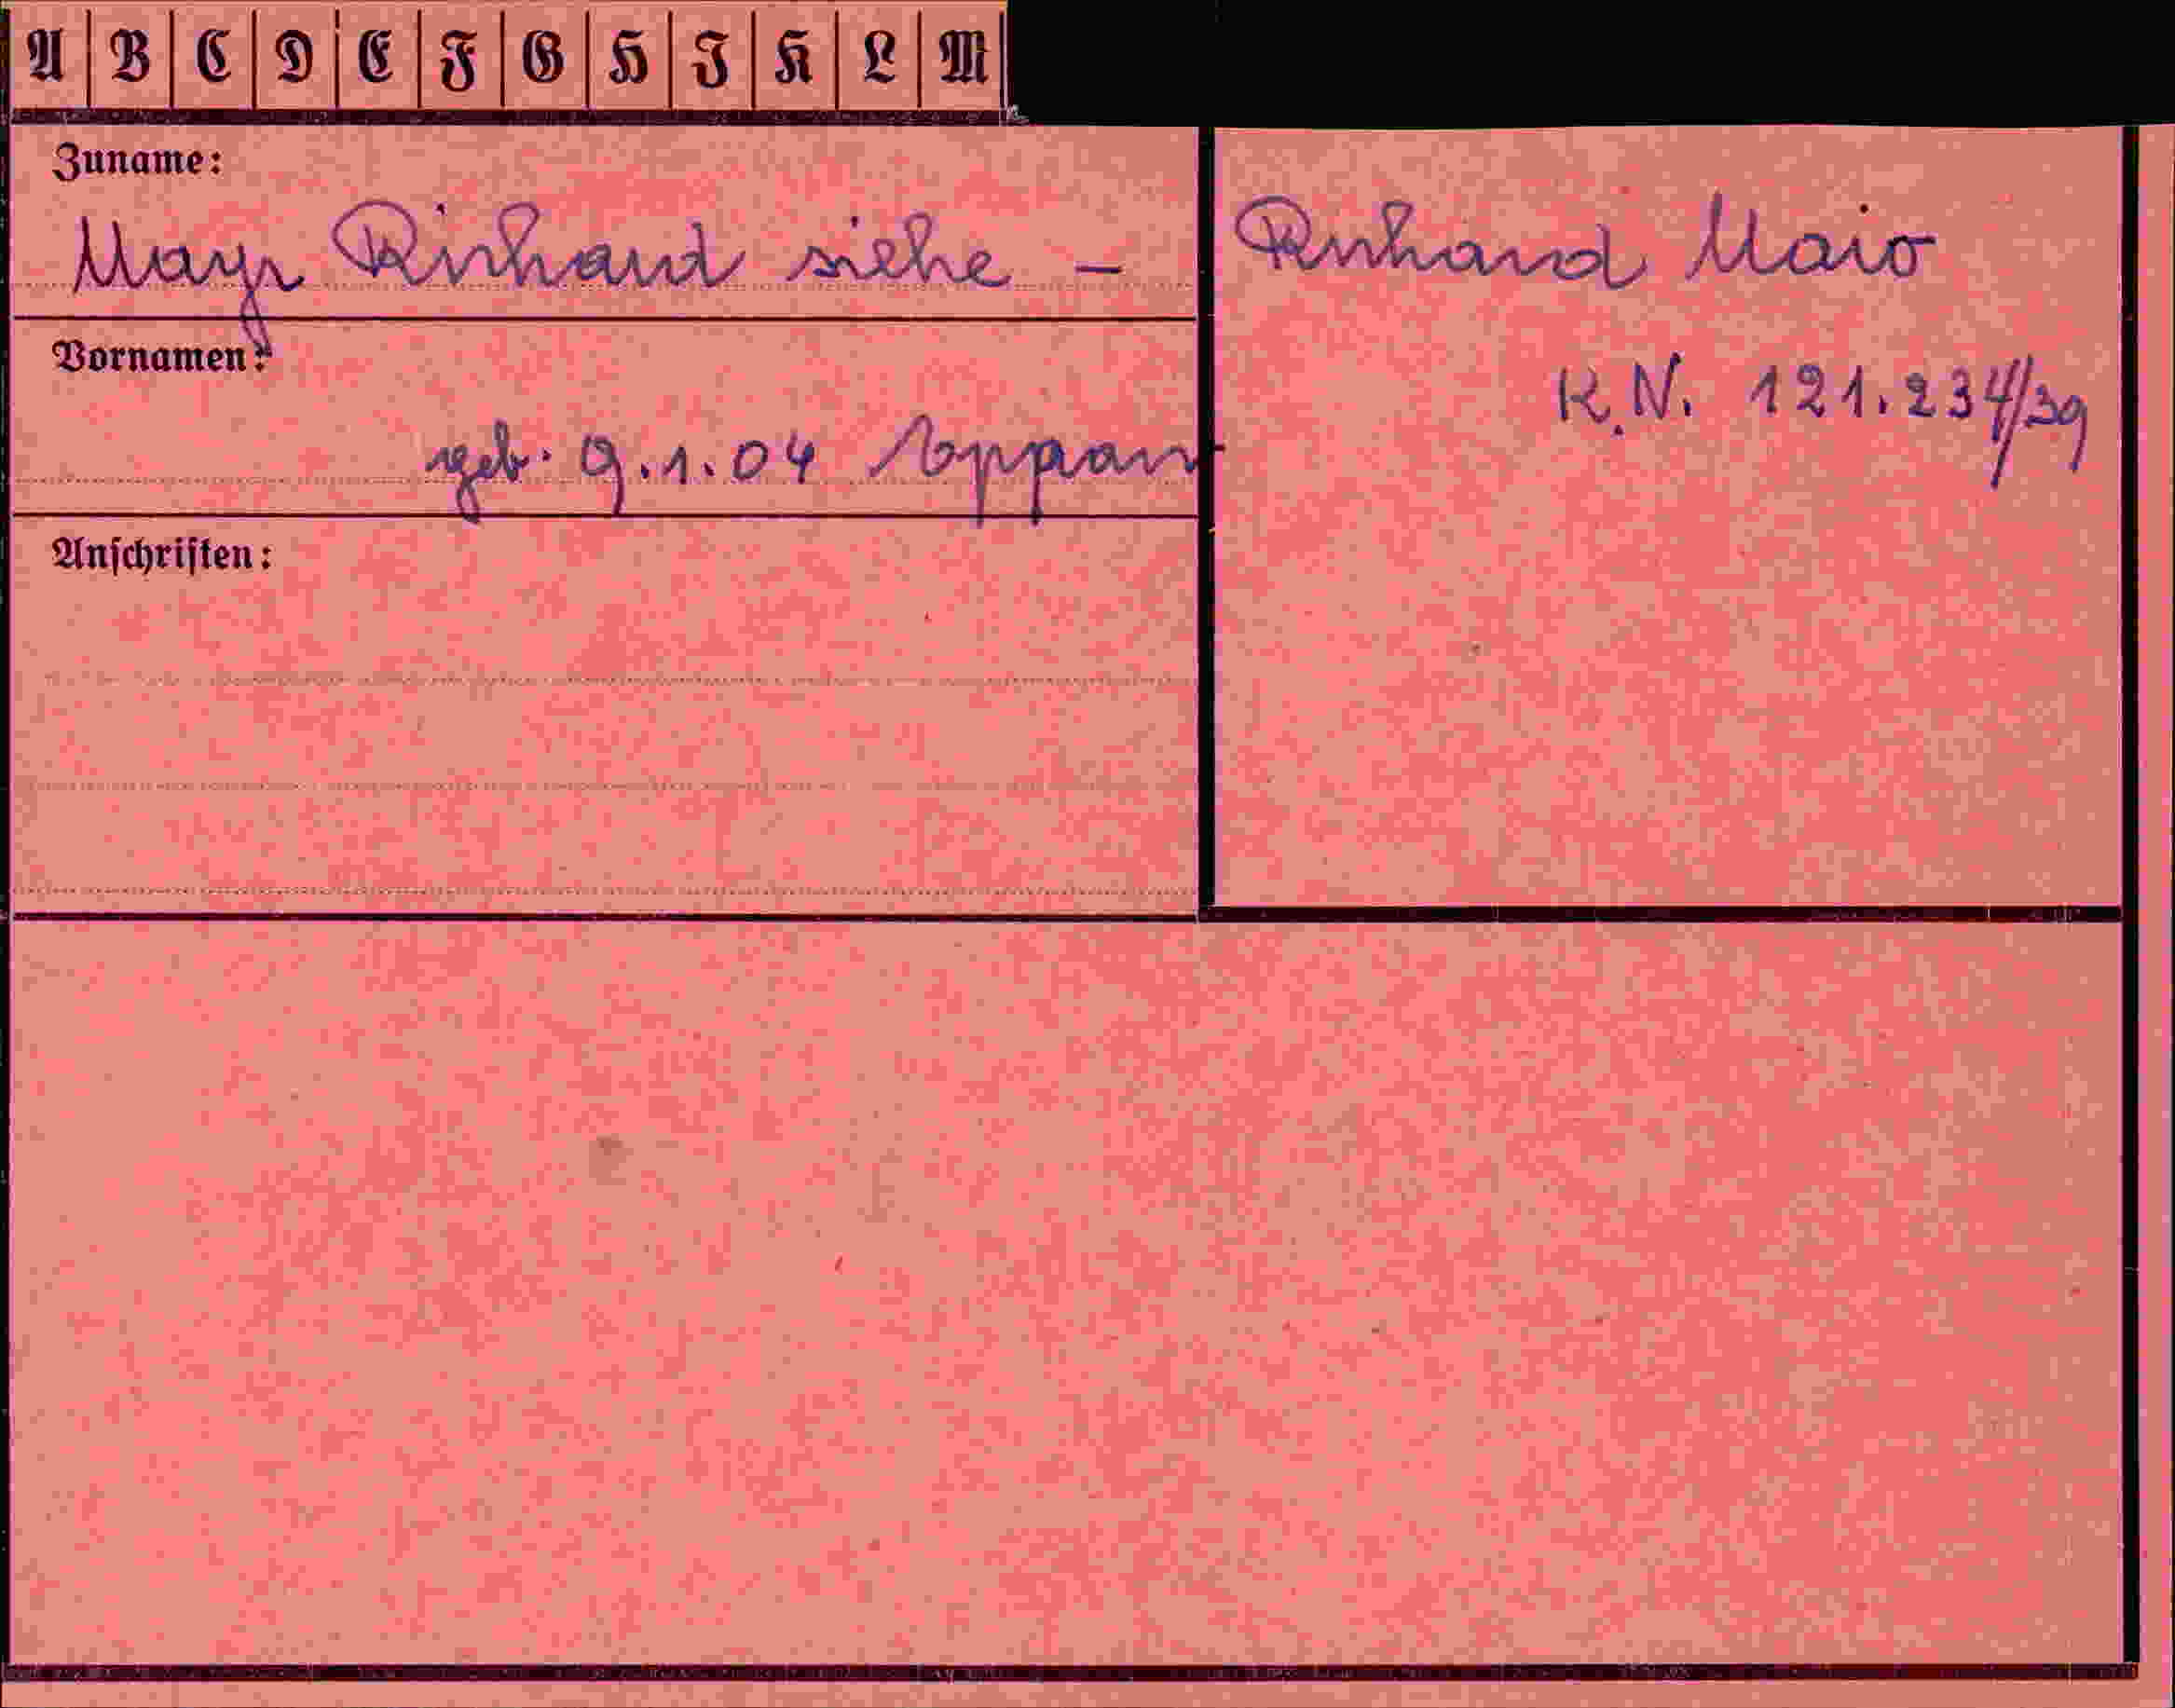 A B C D E F G H J K L M
Zuname:
Mayr Richard siehe – Richard Maio
Vornamen:
K.N. 121.234/39
geb. 9.1.04 Eppan
Anschriften: